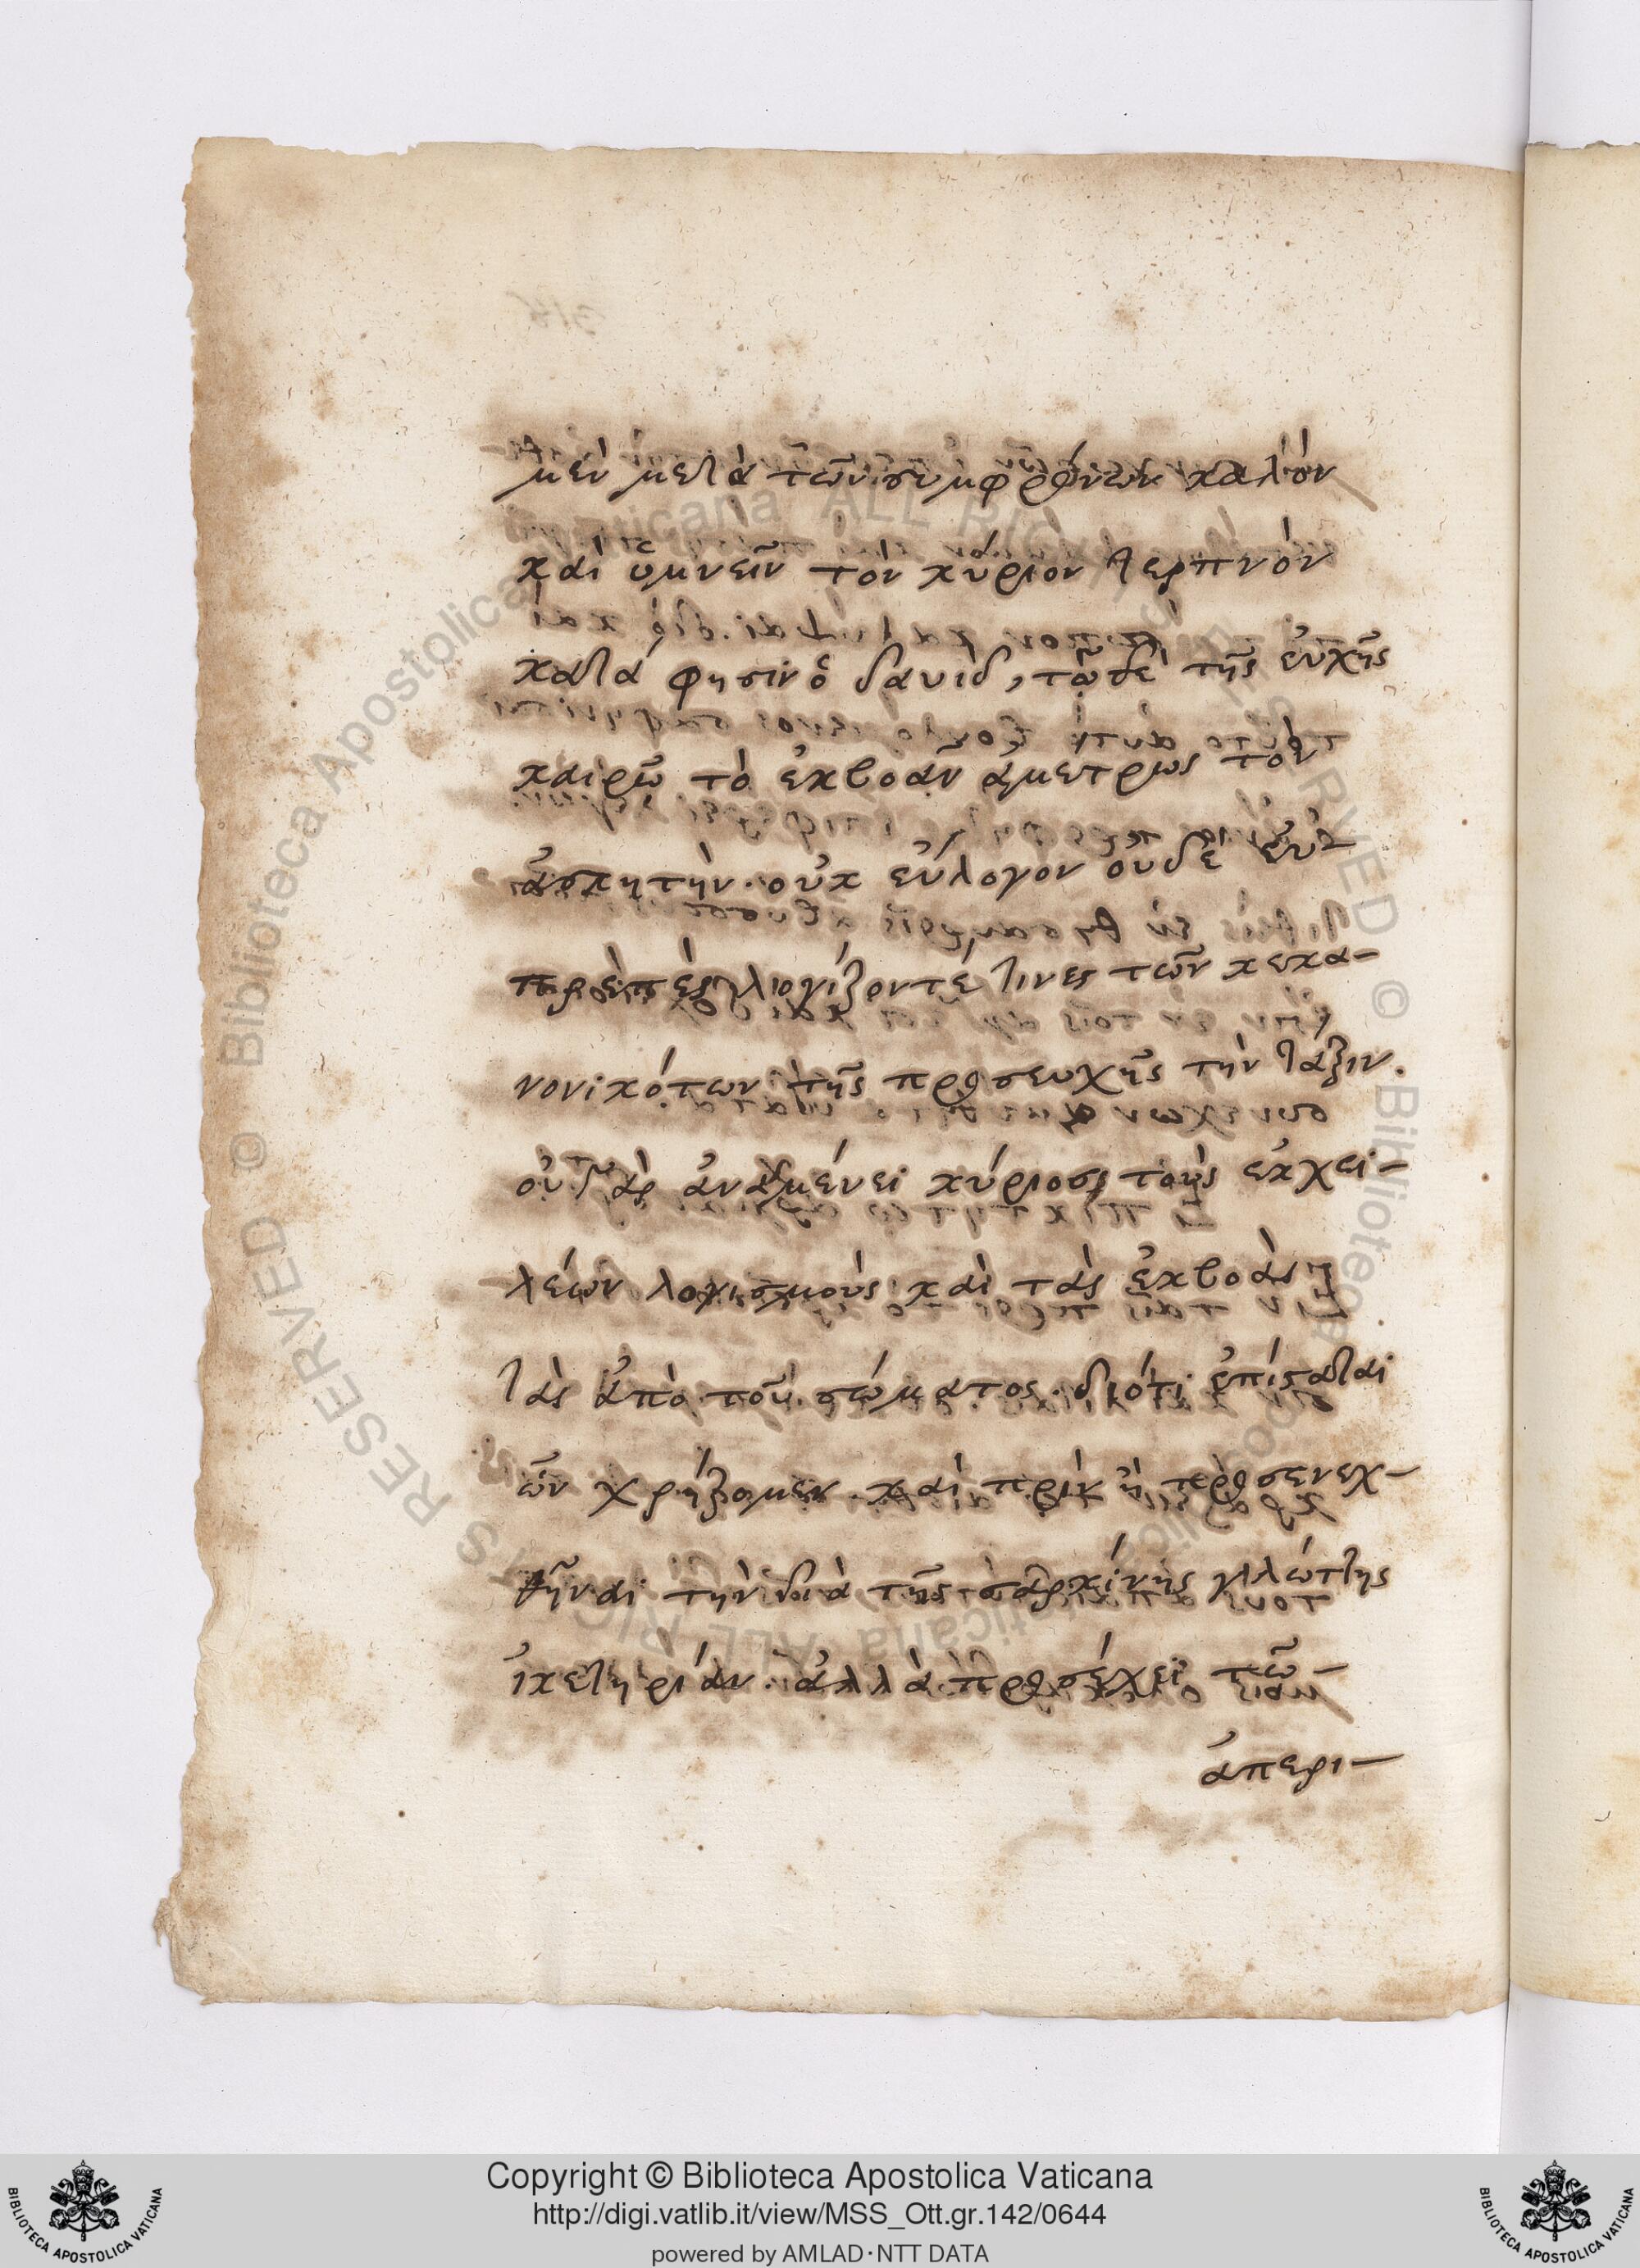 μὲν μετὰ τῶν συμφρόνων καλὸν
καὶ ὑμνεῖν τὸν κύριον τερπνὸν
κατά φησιν ὁ δαυιδ, τῶ δὲ τῆς εὐχῆς
καιρῶ τὸ ἐκβοᾶν ἀμετρως τὸν
ἀσκητὴν. οὐκ εὔλογον οὐδὲ
πρεπὲς λογίζονταί τινες τῶν κεκα-
νονικότων τῆς προσευχῆς τὴν τάξιν.
οὐ γὰρ ἀναμένει κύριος τοὺς ἐκ χει-
λέων λογισμοὺς καὶ τὰς ἐκβοὰς
τὰς ἀπὸ τοῦ σώματος. διότι ἐπίσταται
ὧν χρήζομεν. καὶ πρὶν ἢ προσενεχ-
θῆναι τὴν διὰ τῆς σαρκίνης γλώττης
ἱκετηρίαν. ἀλλὰ προσέχει τῶ-
ἀπερι-
Copyright © Biblioteca Apostolica Vaticana
http://digi.vatlib.it/view/MSS_Ott.gr.142/0644
powered by AMLAD·NTT DATA
BIBLIOTECA APOSTOLICA VATICANA
BIBLIOTECA APOSTOLICA VATICANA